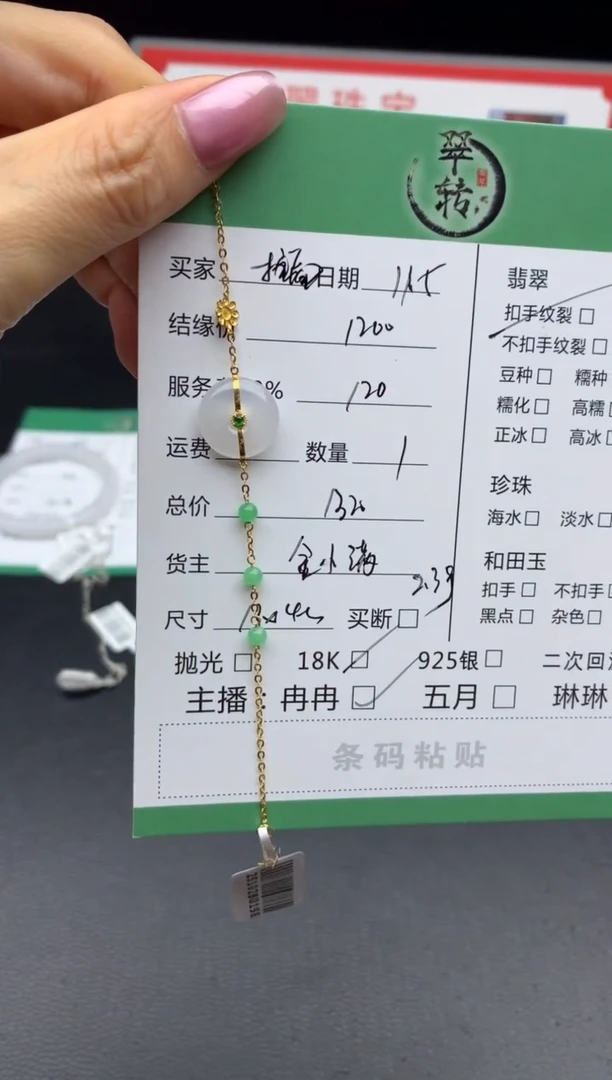 翠转
买家 日期 11.5
结缘 1200
服务 % 120
运费 数量 1
总价 1320
货主 金小满
2.39
尺寸 买断□
抛光□ 18K□ 925银□ 二次回
主播：冉冉□ 五月□ 琳琳
条码粘贴
翡翠
扣手纹裂□
不扣手纹裂□
豆种□ 糯种
糯化□ 高糯
正冰□ 高冰
珍珠
海水□ 淡水□
和田玉
扣手□ 不扣手
黑点□ 杂色□